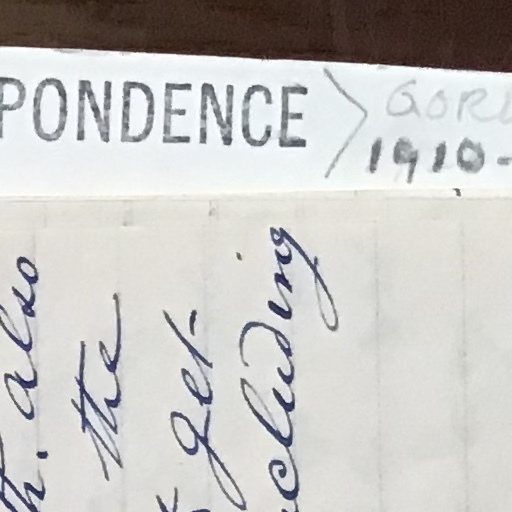 th. also
the
get
ncluding
PONDENCE
1910-